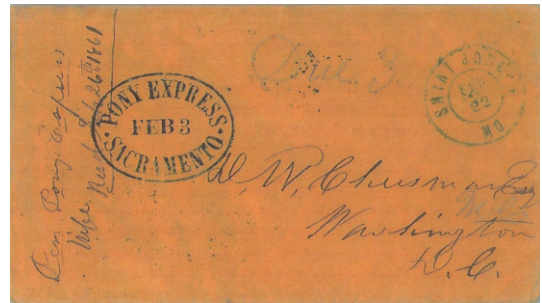 Per Pony Express
Wife Recd Feb 26th 1861
PONY EXPRESS
FEB 3
SACRAMENTO
SAINT JOSEPH
FEB
22
MO
Due 3
D. W. Cheesman Esq
Washington
D. C.